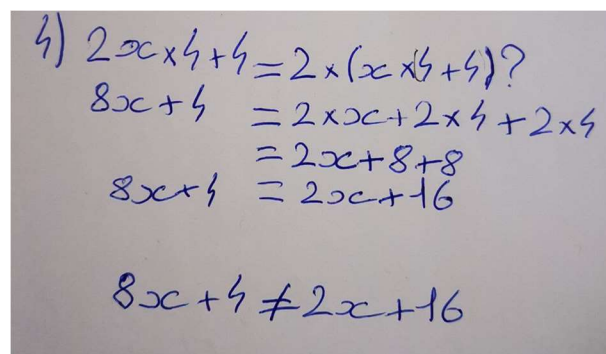 4) 2x×4+4 = 2×(x×4+4)?
8x+4 = 2×x+2×4+2×4
= 2x+8+8
8x+4 = 2x+16
8x+4≠2x+16